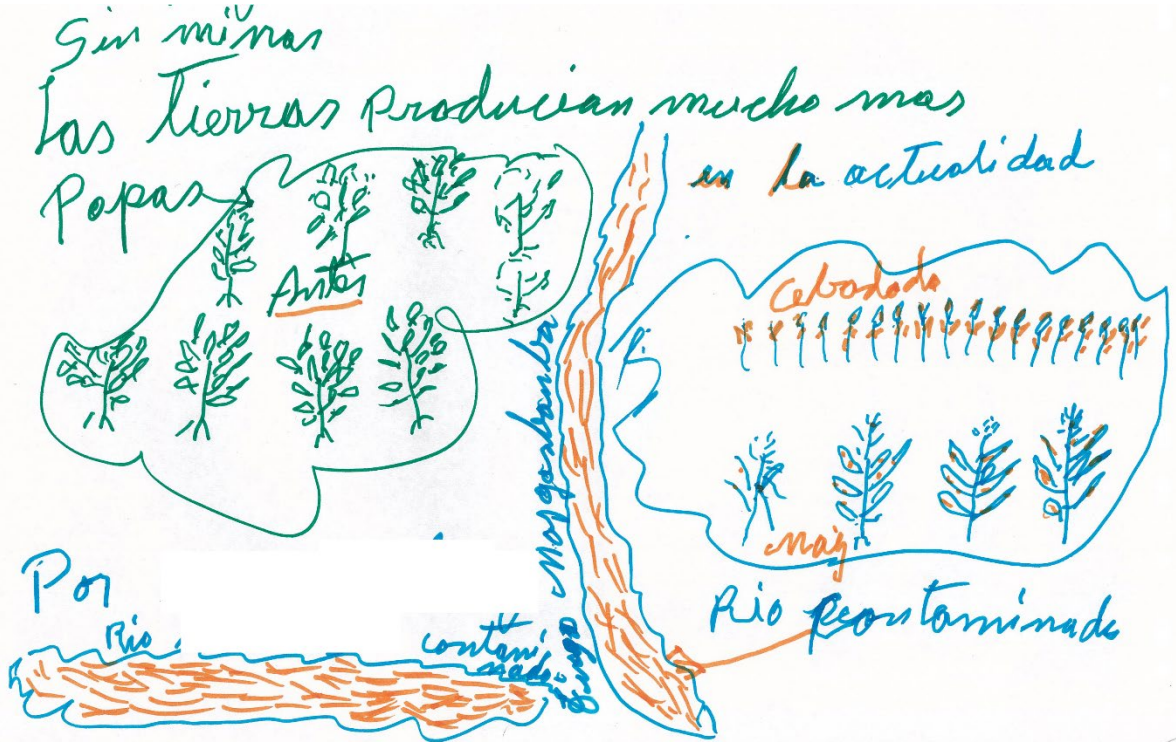 Sin minas
Las tierras producian mucho mas
Papas
Antes
en la actualidad
Cebadado
maiz
Por
Rio
contami
nado
Rio contaminado